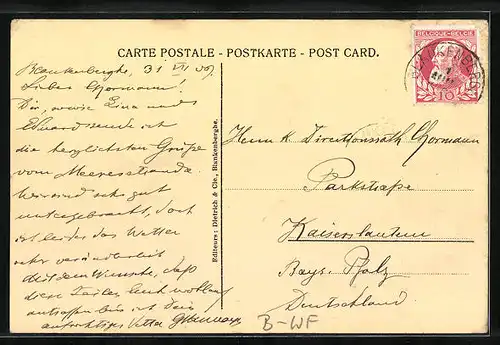 CARTE POSTALE - POSTKARTE - POST CARD.
BELGIQUE-BELGIË
BLANKENBERGHE
Blankenberghe, 31 VII 09.
Lieber Thormann!
Dir, sowie Lina und
Eduard sende ich
die herzlichsten Grüße
vom Meeresstrande.
Wir sind sehr gut
untergebracht, doch
ist leider das Wetter
sehr veränderlich
Mit dem Wunsche, daß
diese Zeilen Euch wohlauf
antreffen bin ich Dein
aufrichtiger Vetter
Editeurs: Dietrich & Cie., Blankenberghe.
Herrn K. Direktionsrath Thormann
Parkstraße
Kaiserslautern
Bayr. Pfalz
Deutschland
B-WF